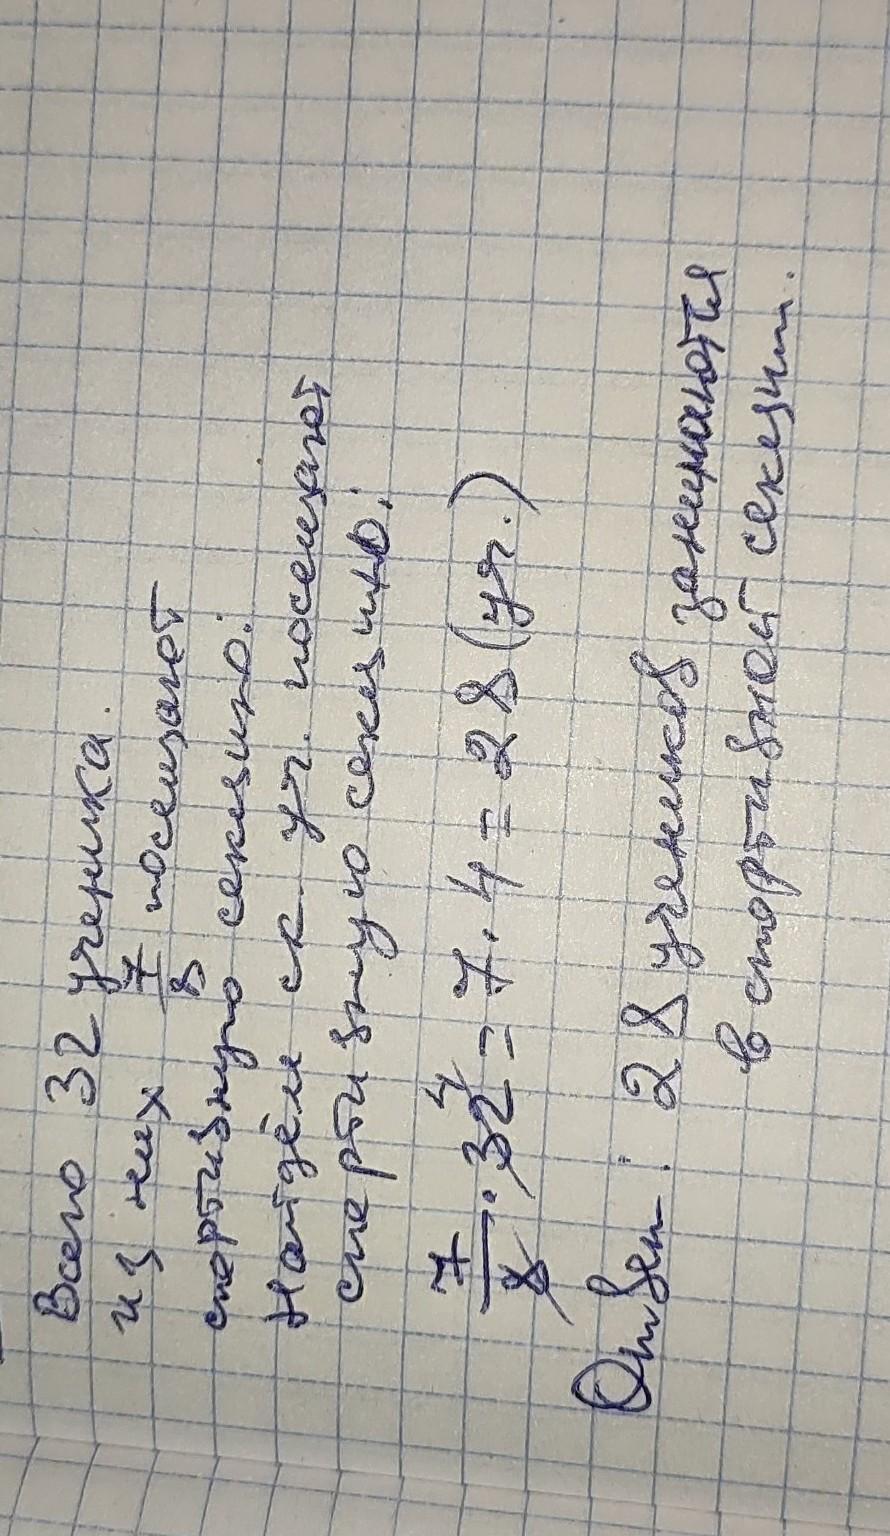 Всего 32 ученика.
из них 7/8 посещают
спортивную секцию.
Найдём ск. уч. посещают
спортивную секцию.
7/8 · 32 4 = 7 · 4 = 28 (уч.)
Ответ: 28 учеников занимаются
в спортивной секции.